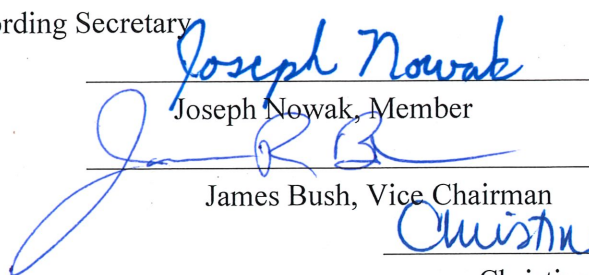 ording Secretary
Joseph Nowak
Joseph Nowak, Member
James R B
James Bush, Vice Chairman
Christin
Christi